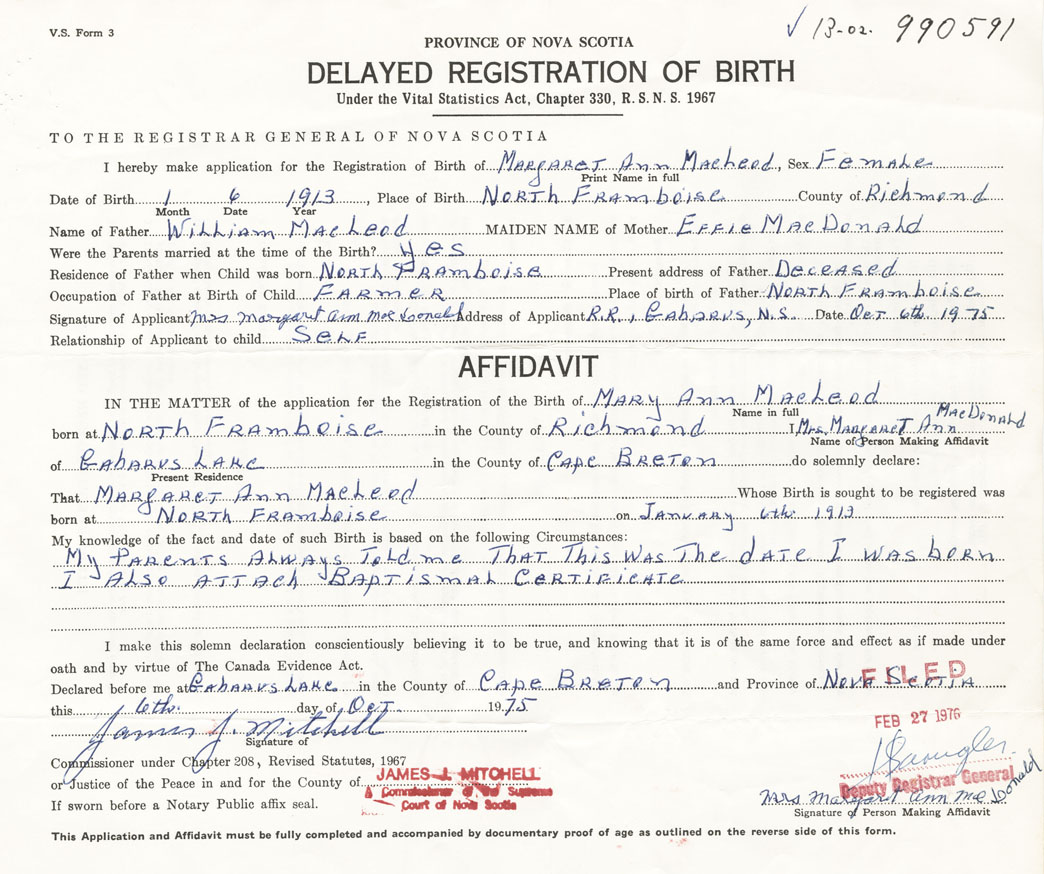 V.S. Form 3
✓ 13-02. 990591
PROVINCE OF NOVA SCOTIA
DELAYED REGISTRATION OF BIRTH
Under the Vital Statistics Act, Chapter 330, R. S. N. S. 1967
TO THE REGISTRAR GENERAL OF NOVA SCOTIA
I hereby make application for the Registration of Birth of Margaret Ann MacLeod, Sex Female
Print Name in full
Date of Birth 1 6 1913, Place of Birth North Framboise County of Richmond
Month Date Year
Name of Father William MacLeod MAIDEN NAME of Mother Effie MacDonald
Were the Parents married at the time of the Birth? Yes
Residence of Father when Child was born North Framboise Present address of Father Deceased
Occupation of Father at Birth of Child Farmer Place of birth of Father North Framboise
Signature of Applicant Mrs Margaret Ann MacDonald Address of Applicant R.R., Gabarus, N.S. Date Oct 6th 1975
Relationship of Applicant to child Self
AFFIDAVIT
IN THE MATTER of the application for the Registration of the Birth of Mary Ann MacLeod
Name in full
born at North Framboise in the County of Richmond I Mrs. Margaret Ann MacDonald
Name of Person Making Affidavit
of Gabarus Lake in the County of Cape Breton do solemnly declare:
Present Residence
That Margaret Ann MacLeod Whose Birth is sought to be registered was
born at North Framboise on January 6th 1913
My knowledge of the fact and date of such Birth is based on the following Circumstances:
My Parents Always Told me That This Was The date I was born
I Also Attach Baptismal Certificate
I make this solemn declaration conscientiously believing it to be true, and knowing that it is of the same force and effect as if made under
oath and by virtue of The Canada Evidence Act.
Declared before me at Gabarus Lake in the County of Cape Breton and Province of Nova Scotia
FILED
this 6th day of Oct 1975
FEB 27 1976
James J. Mitchell
Signature of
Commissioner under Chapter 208, Revised Statutes, 1967
or Justice of the Peace in and for the County of
JAMES J. MITCHELL
A Commissioner of the Supreme
Court of Nova Scotia
Deputy Registrar General
If sworn before a Notary Public affix seal.
Mrs Margaret Ann MacDonald
Signature of Person Making Affidavit
This Application and Affidavit must be fully completed and accompanied by documentary proof of age as outlined on the reverse side of this form.